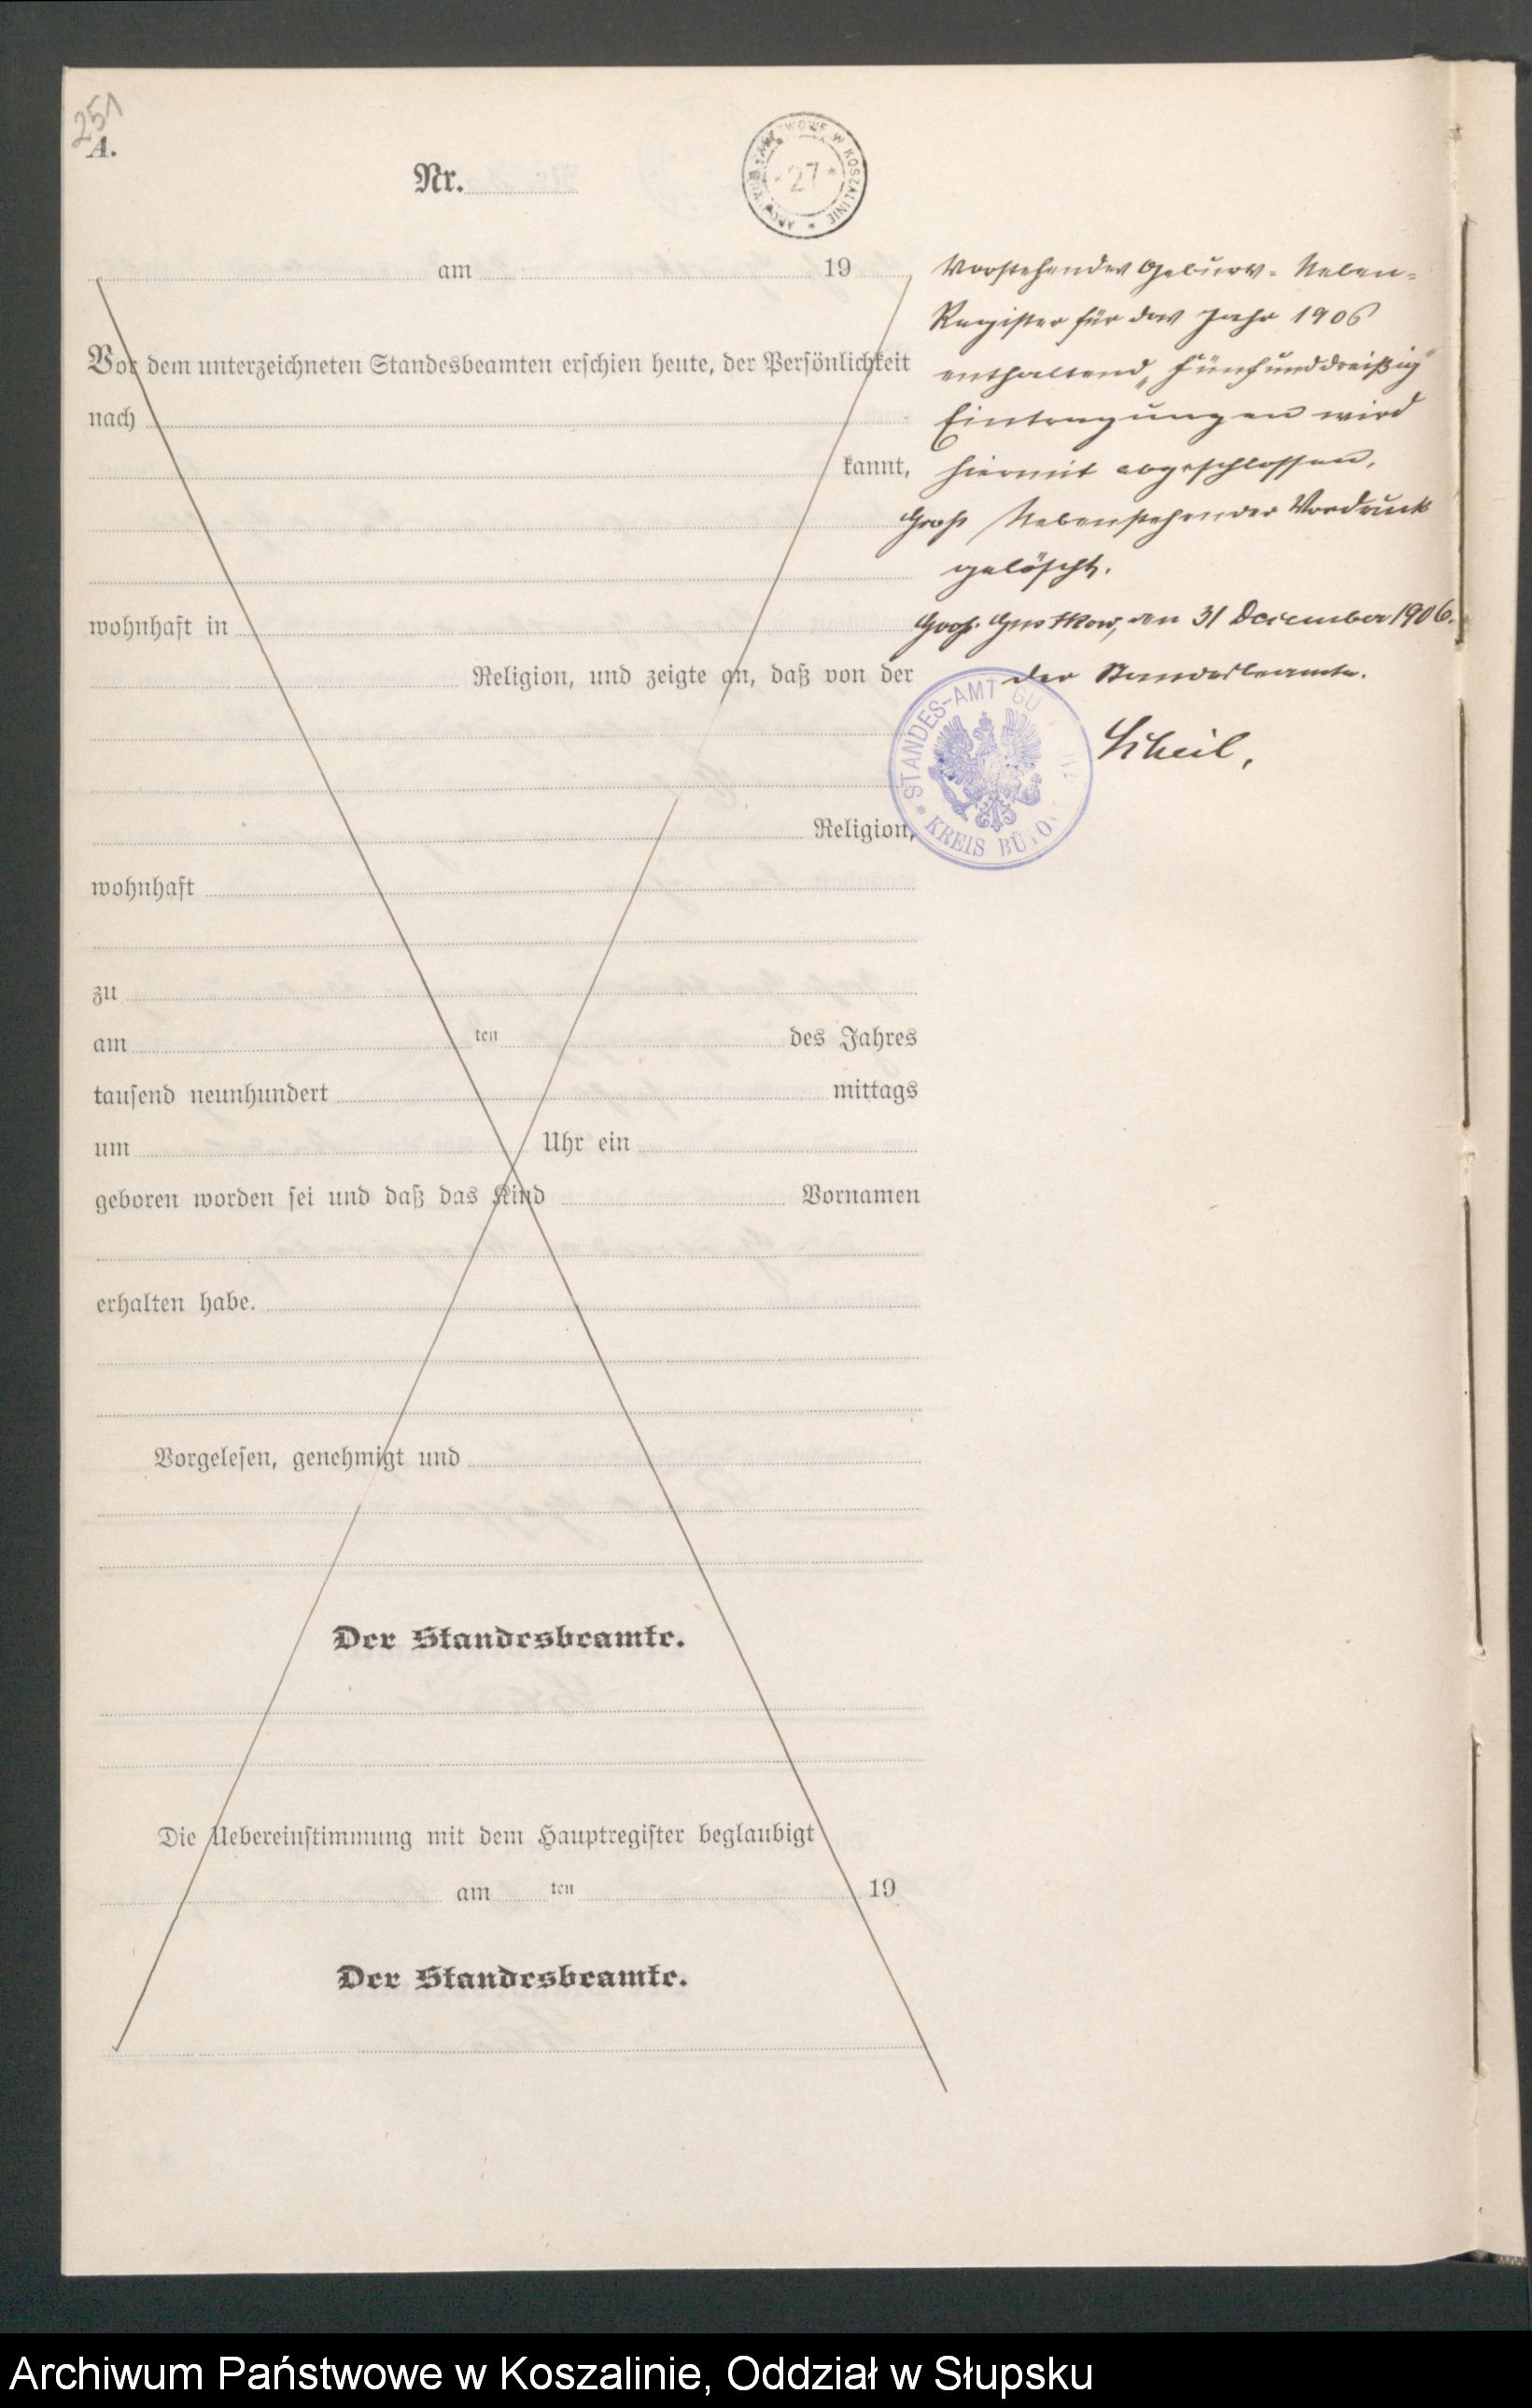 251
A.
Nr.
ARCHIWUM PAŃSTWOWE W KOSZALINIE * 27 *
am 19
Vor dem unterzeichneten Standesbeamten erschien heute, der Persönlichkeit
nach
kannt,
wohnhaft in
Religion, und zeigte an, daß von der
Religion,
wohnhaft
zu
am ten des Jahres
tausend neunhundert mittags
um Uhr ein
geboren worden sei und daß das Kind Vornamen
erhalten habe.
Vorgelesen, genehmigt und
Der Standesbeamte.
Die Uebereinstimmung mit dem Hauptregister beglaubigt
am ten 19
Der Standesbeamte.
Vorstehendes Geburts-Neben-
Register für das Jahr 1906
enthaltend „fünfunddreißig"
Eintragungen wird
hiermit abgeschlossen.
Nebenstehender Vordruck
gelöscht.
Groß Gustkow, den 31 December 1906.
Der Standesbeamte.
Scheil,
STANDES-AMT GU
* KREIS BÜTO
Archiwum Państwowe w Koszalinie, Oddział w Słupsku